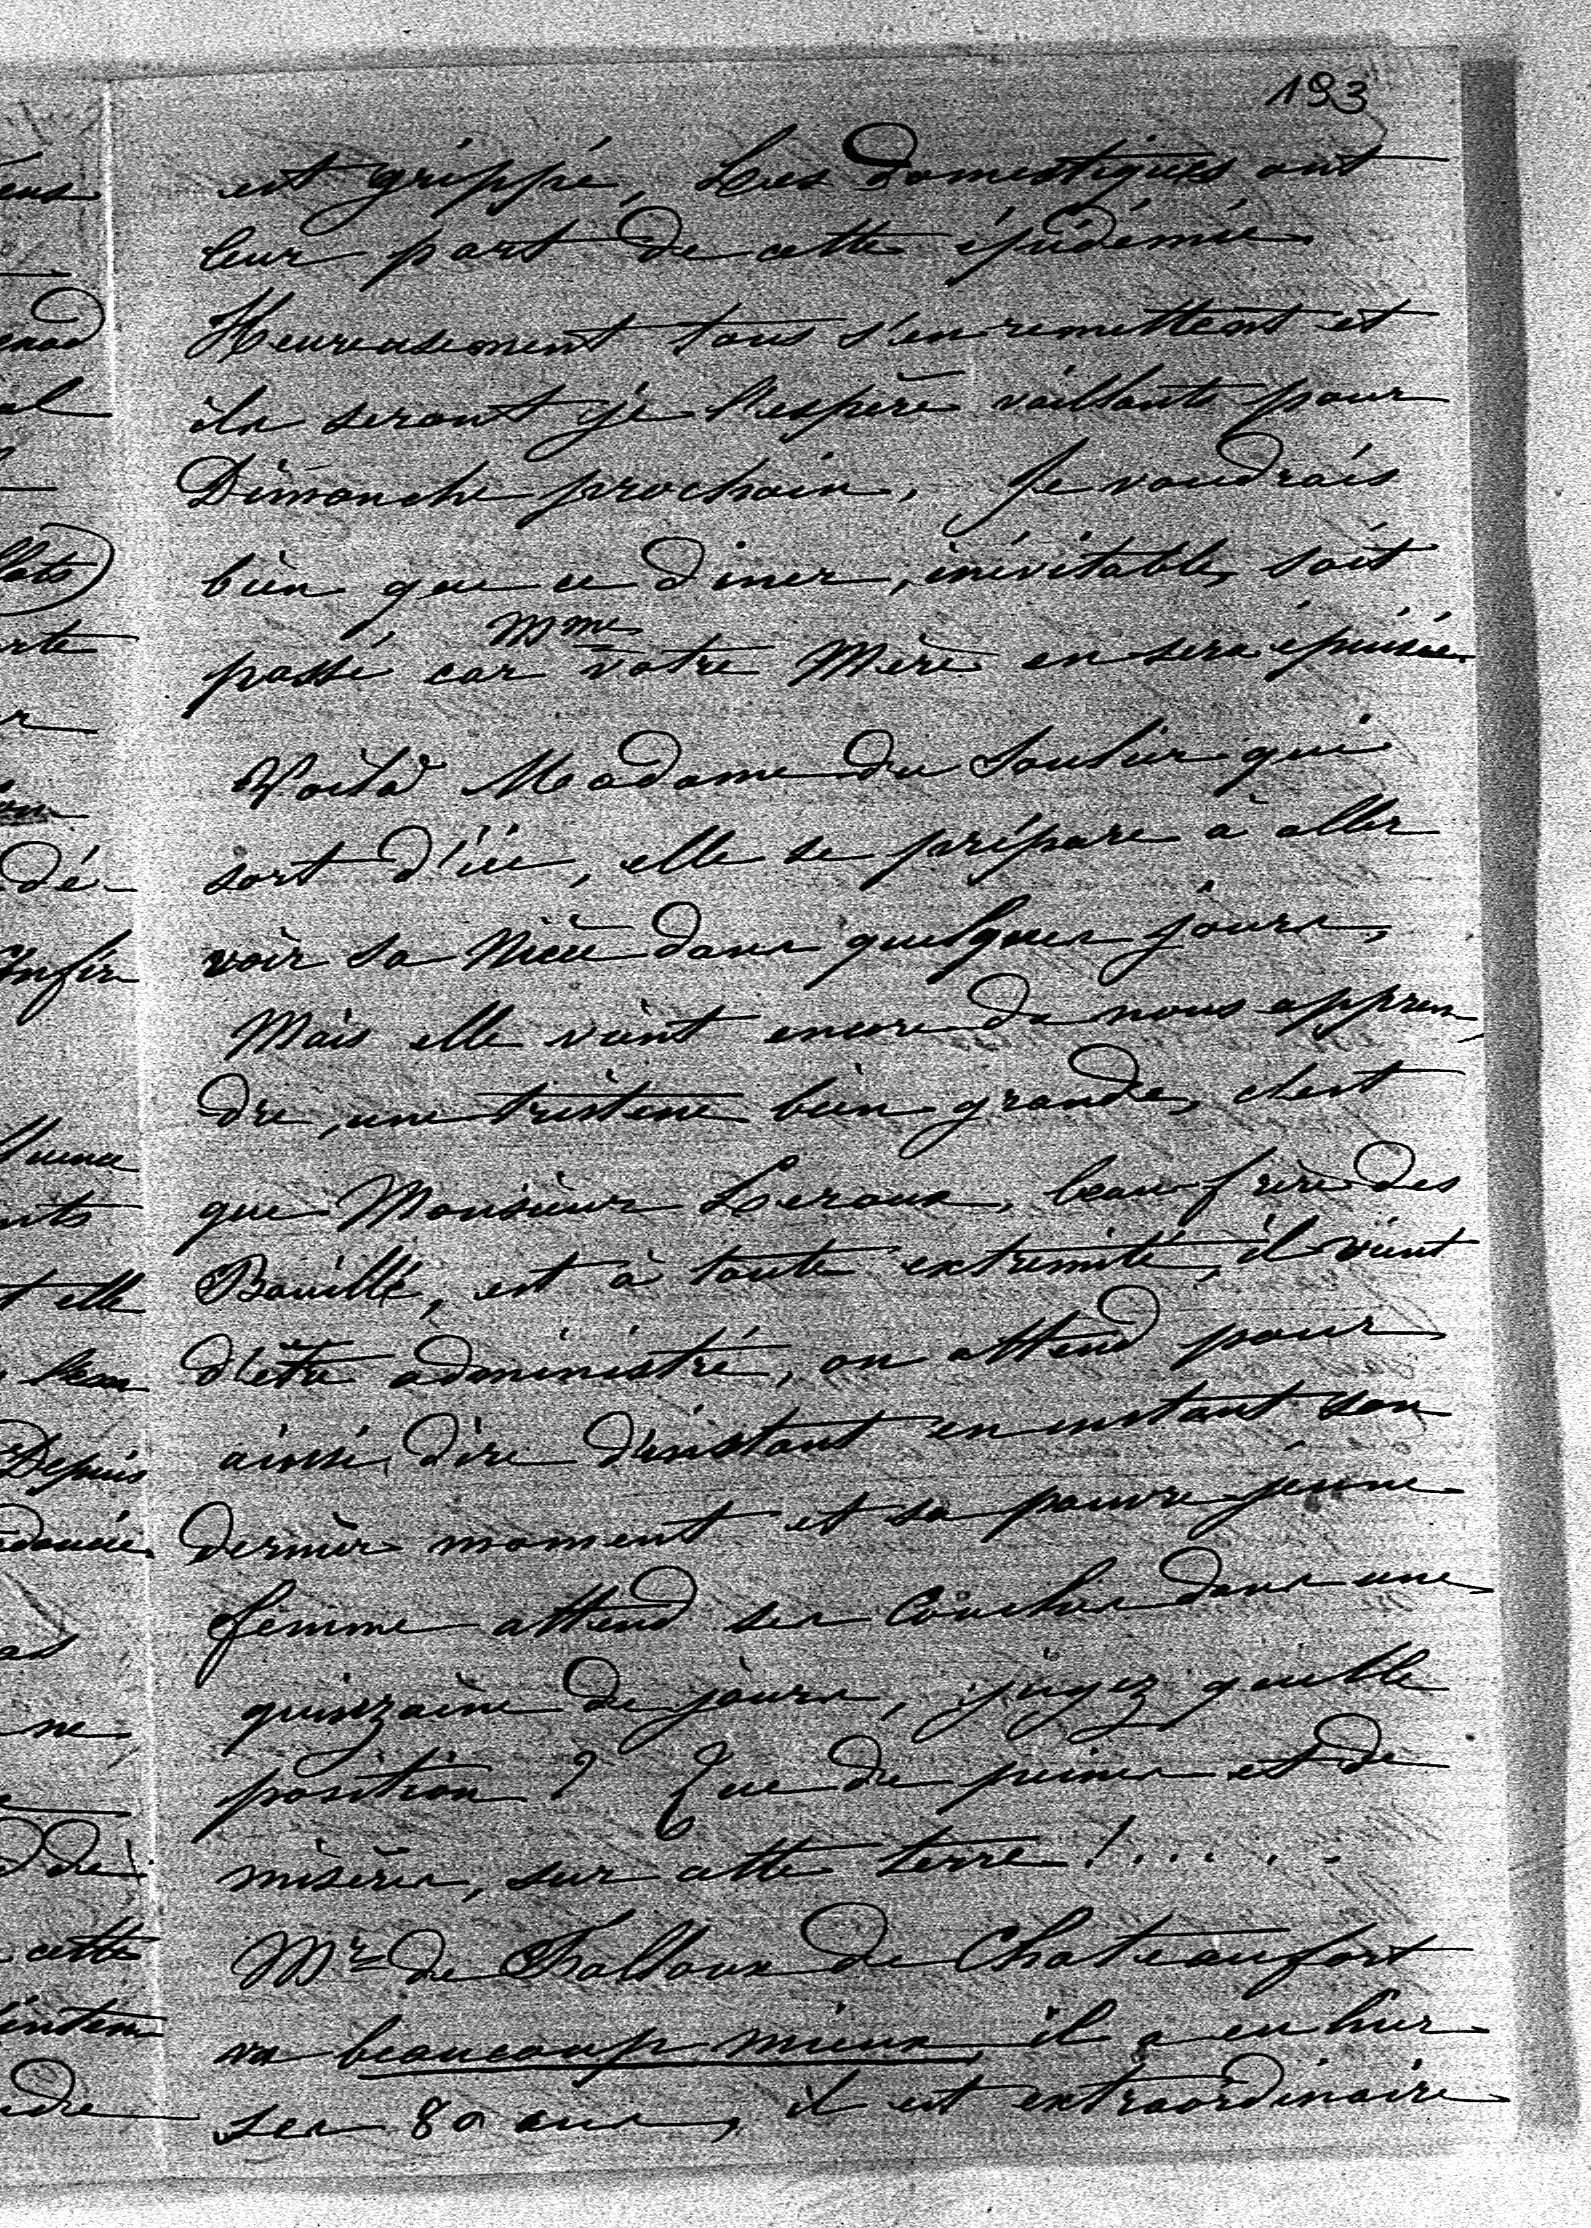 193
est grippé, Les domestiques ont
leur part de cette épidémie.
Heureusement tous s'en remettent et
ils seront je l'espère vaillants pour
Dimanche prochain, Je voudrais
bien que ce diner, inévitable, soit
passé car Mme votre Mère en sera épuisée.
Voilà Madame du Soulier qui
sort d'ici, elle se prépare à aller
voir sa Nièce dans quelques jours,
Mais elle vient encore de nous appren
dre, une tristesse bien grande, c'est
que Monsieur Leroux, beau-frère des
Bouillé, est à toute extremité, il vient
d'être administré, on attend pour
ainsi dire d'instant en instant son
dernier moment et sa pauvre jeune
femme attend ses Couches dans une
quinzaine de jours, jugez quelle
position ? Que de peines et de
misères, sur cette terre !.....
Mr de Falloux de Chateaufort
va beaucoup mieux, il a eu hier
ses 80 ans, il est extraordinaire